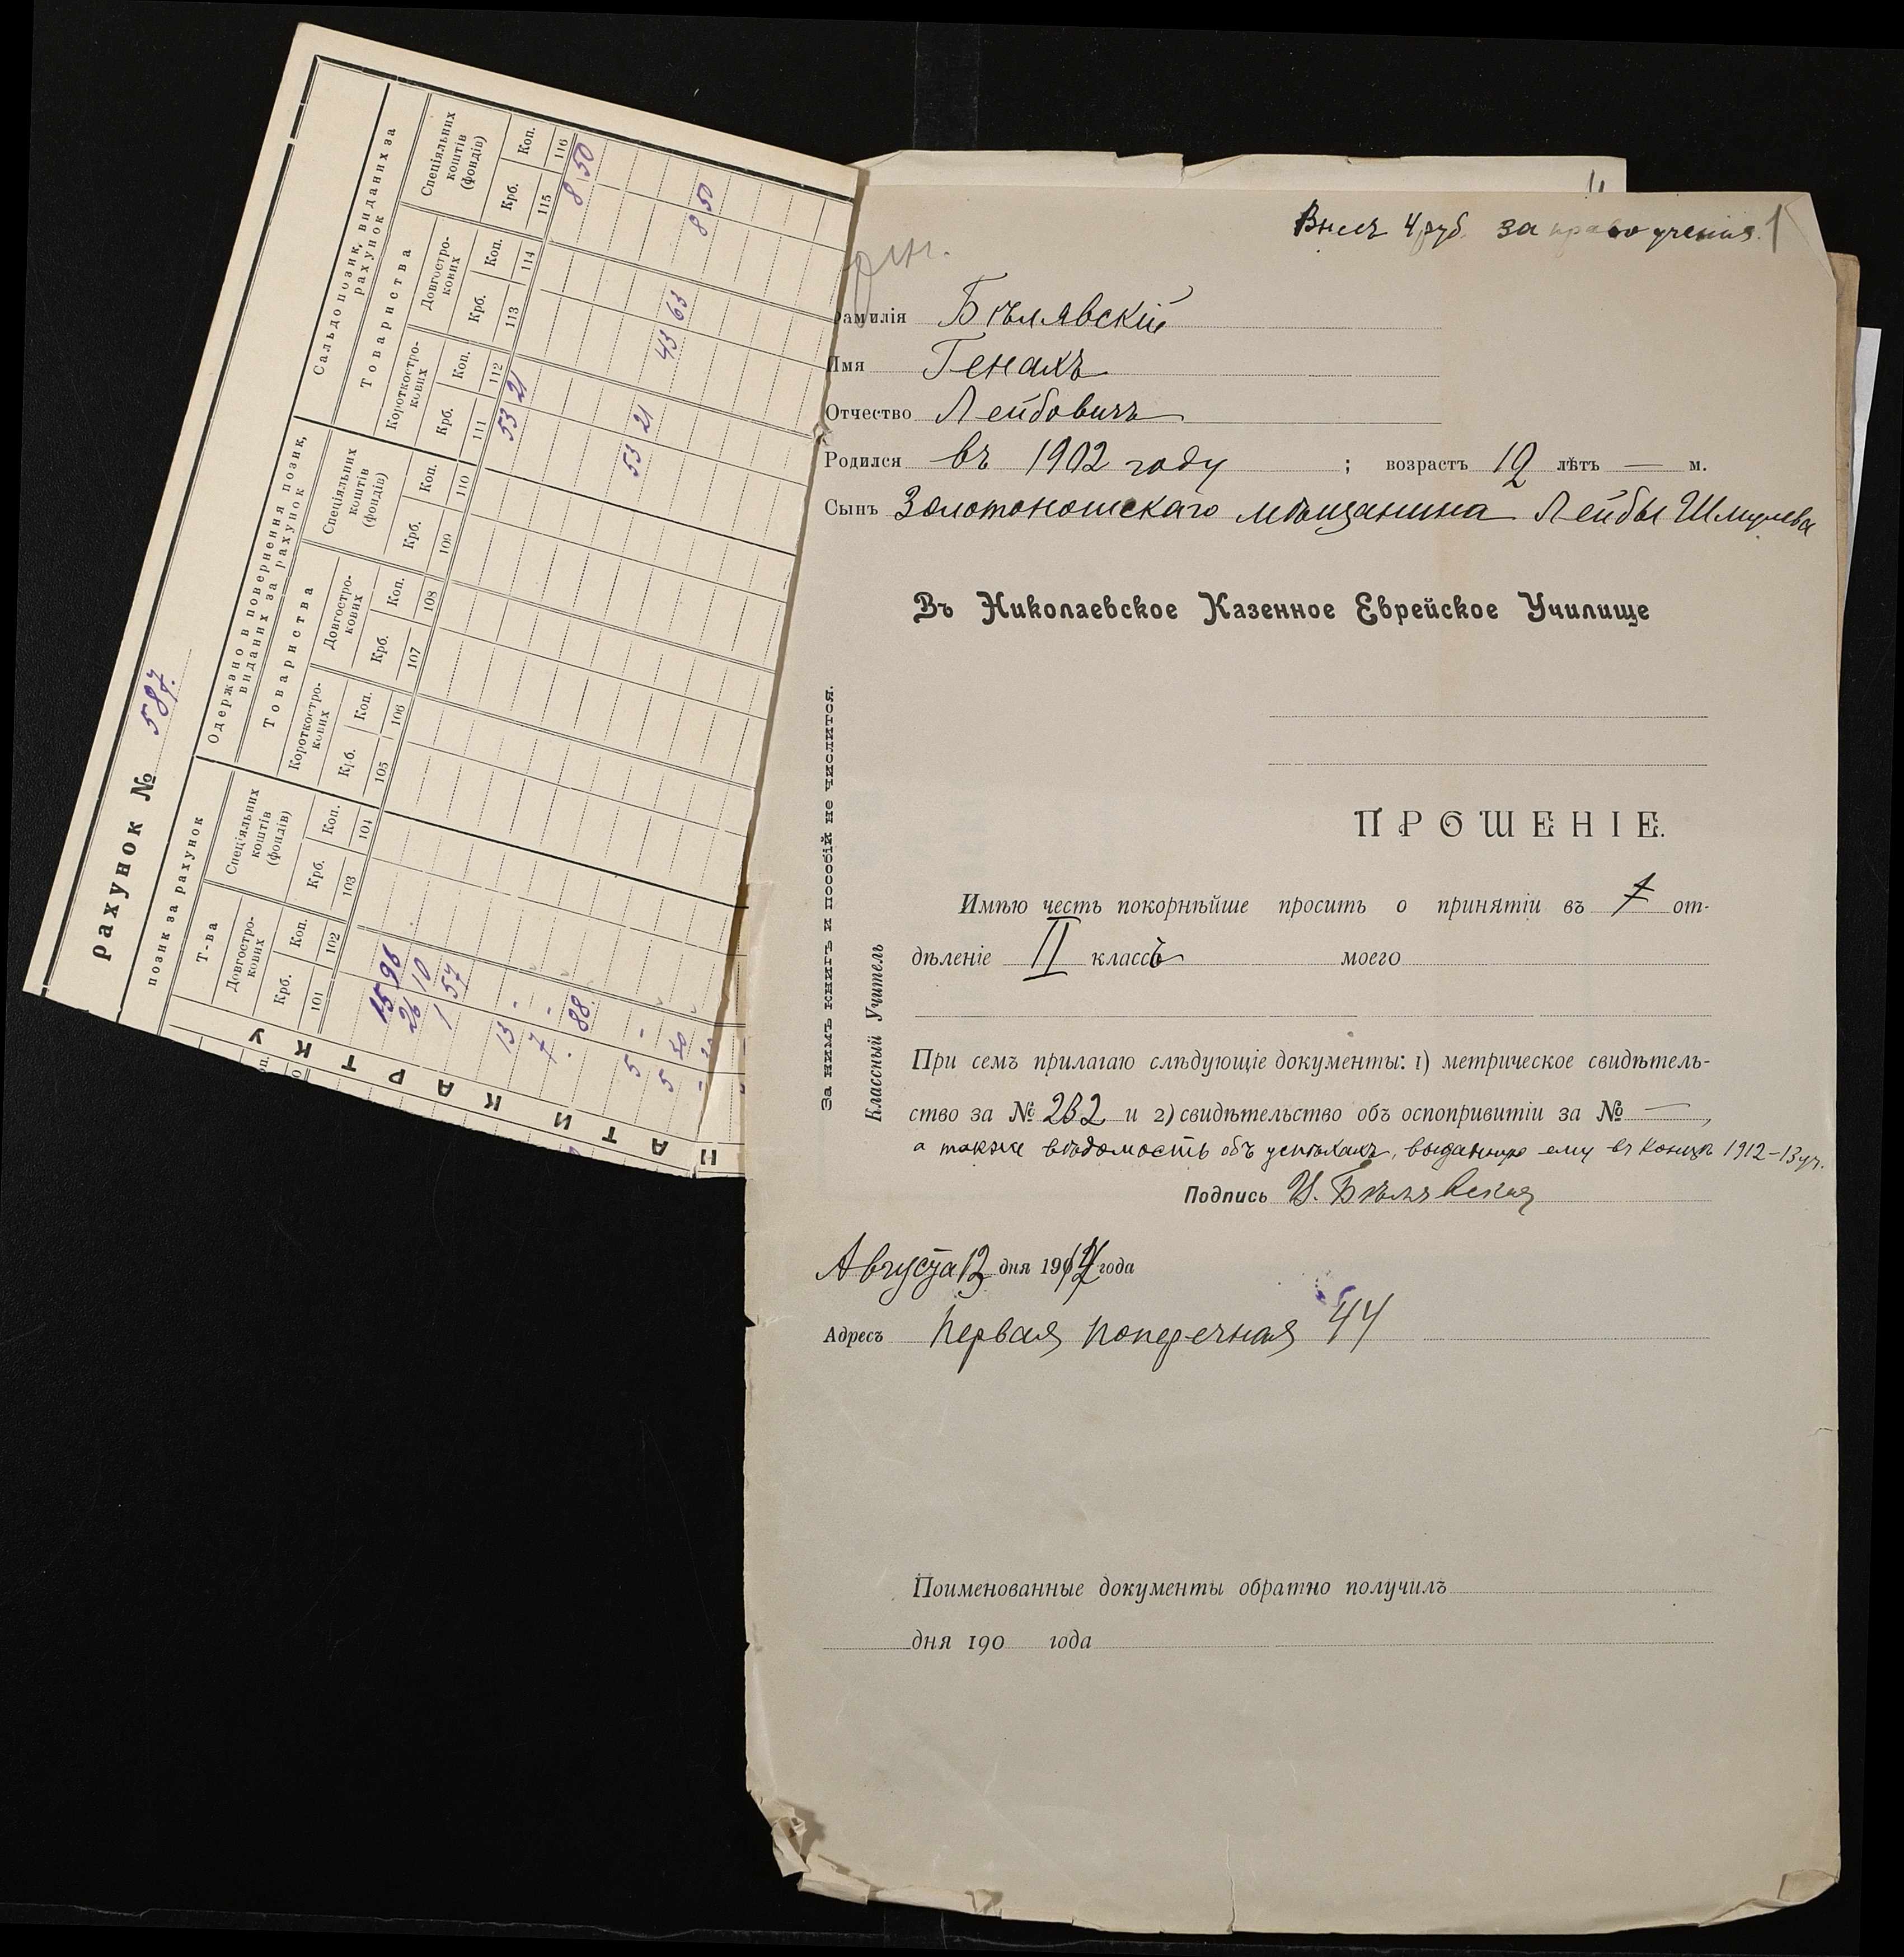 рахунок № 587.
позик за рахунок
Одержано в повернення позик,
виданих за рахунок
Сальдо позик, виданих за
рахунок
Т-ва
Спеціяльних
коштів
(фондів)
Товариства
Спеціяльних
коштів
(фондів)
Товариства
Спеціяльних
коштів
(фондів)
Довгостро-
кових
Короткостро-
кових
Довгостро-
кових
Короткостро-
кових
Довгостро-
кових
Крб. Коп. Крб. Коп. Крб. Коп. Крб. Коп. Крб. Коп. Крб. Коп. Крб. Коп. Крб. Коп.
101 102 103 104 105 106 107 108 109 110 111 112 113 114 115 116
15 96 53 21 8 50
26 10
1 57
13 - 53 21
7 - 43 63
88 8 50
5 -
5 50
КАРТКУ
Внесъ 4 руб. за право ученія. 1
Фамилія Бѣлявскій
Имя Генахъ
Отчество Лейбовичъ
Родился въ 1902 году ; возрастъ 12 лѣтъ — м.
Сынъ Золотоношскаго мѣщанина Лейбы Шмулева
Въ Николаевское Казенное Еврейское Училище
ПРОШЕНІЕ.
Имѣю честь покорнѣйше просить о принятіи въ от-
дѣленіе II классъ моего
При семъ прилагаю слѣдующіе документы: 1) метрическое свидѣтель-
ство за № 232 и 2) свидѣтельство объ оспопривитіи за № — ,
а также вѣдомость объ успѣхахъ, выданную ему въ концѣ 1912-13 уч.
Подпись И. Бѣлявская
Августа 13 дня 1914 года
Адресъ Первая Поперечная 44
Поименованные документы обратно получилъ
дня 190 года
За нимъ книгъ и пособій не числится.
Классный Учитель